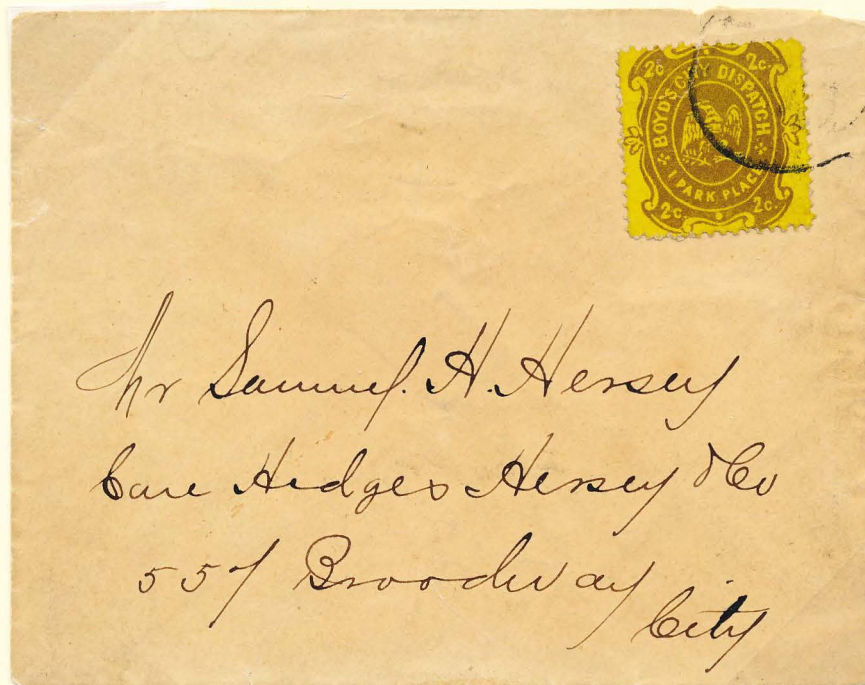 2c. 2c.
BOYD'S CITY DISPATCH
1 PARK PLACE
2c. 2c.
Mr Samuel. H. Hersey
Care Hedges Hersey & Co
557 Broadway
City